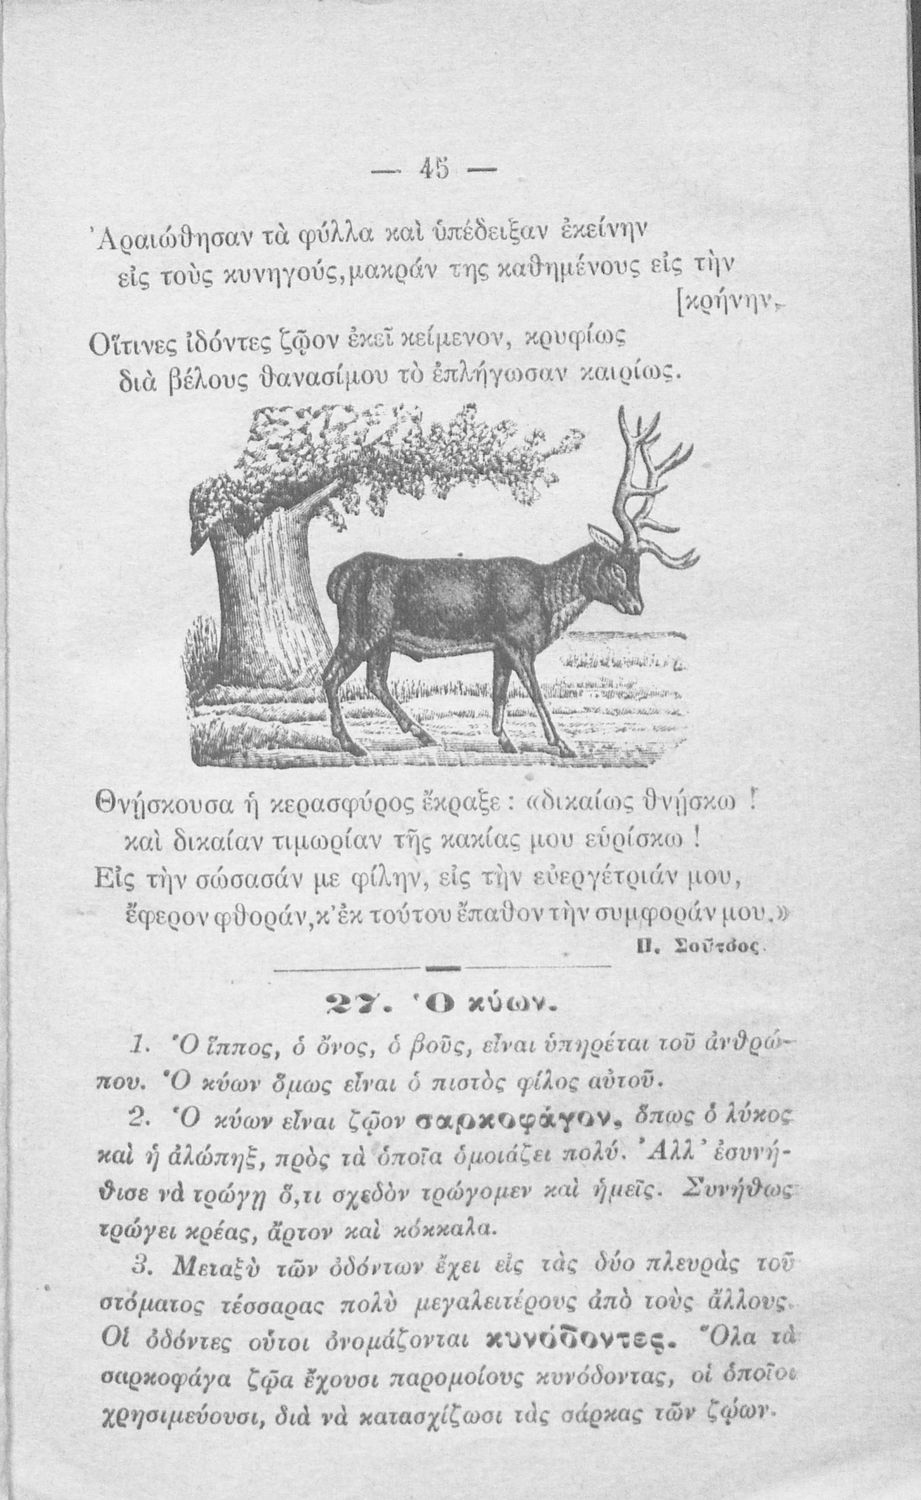 — 45 —
Ἀραιώθησαν τὰ φύλλα καὶ ὑπέδειξαν ἐκείνην
εἰς τοὺς κυνηγούς, μακράν της καθημένους εἰς τὴν
[κρήνην,
Οἵτινες ἰδόντες ζῷον ἐκεῖ κείμενον, κρυφίως
διὰ βέλους θανασίμου τὸ ἐπλήγωσαν καιρίως.
Θνῄσκουσα ἡ κερασφύρος ἔκραξε : «δικαίως θνῄσκω !
καὶ δικαίαν τιμωρίαν τῆς κακίας μου εὑρίσκω !
Εἰς τὴν σώσασάν με φίλην, εἰς τὴν εὐεργέτριάν μου,
ἔφερον φθοράν, κ᾽ ἐκ τούτου ἔπαθον τὴν συμφοράν μου.»
Π. Σοῦτσος.
27. Ὁ κύων.
1. Ὁ ἵππος, ὁ ὄνος, ὁ βοῦς, εἶναι ὑπηρέται τοῦ ἀνθρώ-
που. Ὁ κύων ὅμως εἶναι ὁ πιστὸς φίλος αὐτοῦ.
2. Ὁ κύων εἶναι ζῷον σαρκοφάγον, ὅπως ὁ λύκος
καὶ ἡ ἀλώπηξ, πρὸς τὰ ὁποῖα ὁμοιάζει πολύ. Ἀλλ᾽ ἐσυνή-
θισε νὰ τρώγῃ ὅ,τι σχεδὸν τρώγομεν καὶ ἡμεῖς. Συνήθως
τρώγει κρέας, ἄρτον καὶ κόκκαλα.
3. Μεταξὺ τῶν ὀδόντων ἔχει εἰς τὰς δύο πλευρὰς τοῦ
στόματος τέσσαρας πολὺ μεγαλειτέρους ἀπὸ τοὺς ἄλλους.
Οἱ ὀδόντες οὗτοι ὀνομάζονται κυνόδοντες. Ὅλα τὰ
σαρκοφάγα ζῷα ἔχουσι παρομοίους κυνόδοντας, οἱ ὁποῖοι
χρησιμεύουσι, διὰ νὰ κατασχίζωσι τὰς σάρκας τῶν ζῴων.